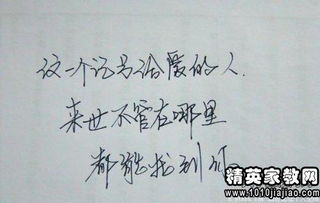 这一个记号给爱的人.
来世不管在哪里
都能找到你。
精英家教网
www.1010jiajiao.com